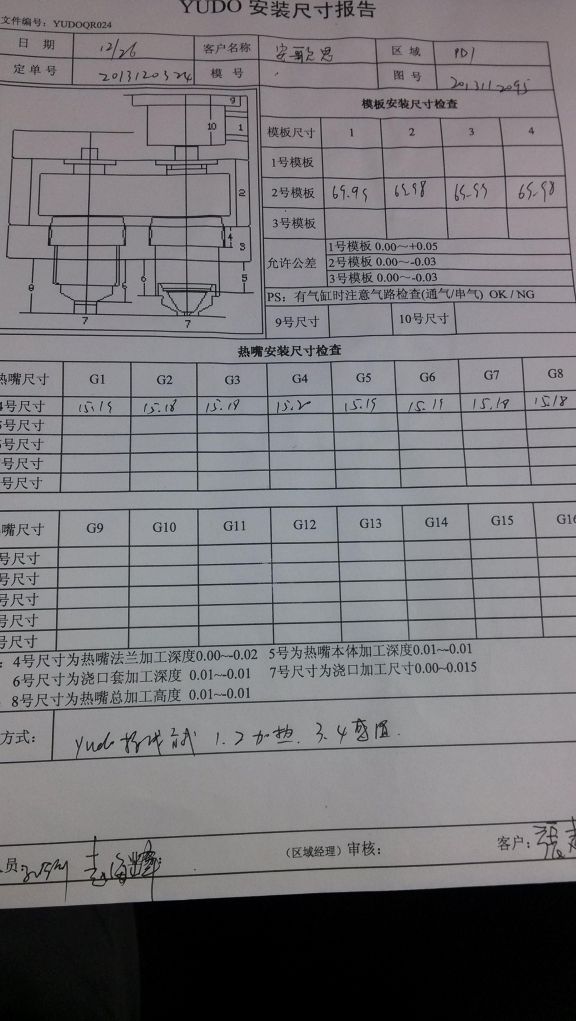 YUDO 安装尺寸报告
文件编号：YUDOQR024
日 期 12/26 客户名称 区 域 PD1
定单号 2013120324 模 号 图 号 2013112095
9
10 1
2
4
3
8 6 6 5
7 7
模板安装尺寸检查
模板尺寸 1 2 3 4
1号模板
2号模板 69.95 69.98 69.99 69.98
3号模板
允许公差 1号模板 0.00～+0.05
2号模板 0.00～-0.03
3号模板 0.00～-0.03
PS：有气缸时注意气路检查(通气/串气) OK / NG
9号尺寸 10号尺寸
热嘴安装尺寸检查
热嘴尺寸 G1 G2 G3 G4 G5 G6 G7 G8
4号尺寸 15.19 15.18 15.18 15.20 15.19 15.19 15.18 15.18
号尺寸
号尺寸
号尺寸
号尺寸
嘴尺寸 G9 G10 G11 G12 G13 G14 G15 G16
号尺寸
号尺寸
号尺寸
号尺寸
号尺寸
：4号尺寸为热嘴法兰加工深度0.00~-0.02 5号为热嘴本体加工深度0.01~-0.01
6号尺寸为浇口套加工深度 0.01~-0.01 7号尺寸为浇口加工尺寸0.00~0.015
8号尺寸为热嘴总加工高度 0.01~-0.01
方式： Yudo 1.2加热. 3.4感温.
员： （区域经理）审核： 客户：